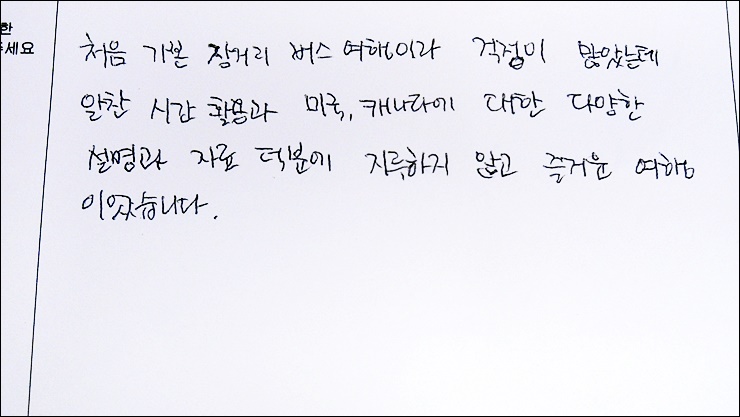 한
세요
처음 기본 장거리 버스 여행이라 걱정이 많았는데
알찬 시간 활용과 미국, 캐나다에 대한 다양한
설명과 자료 덕분에 지루하지 않고 즐거운 여행
이었습니다.